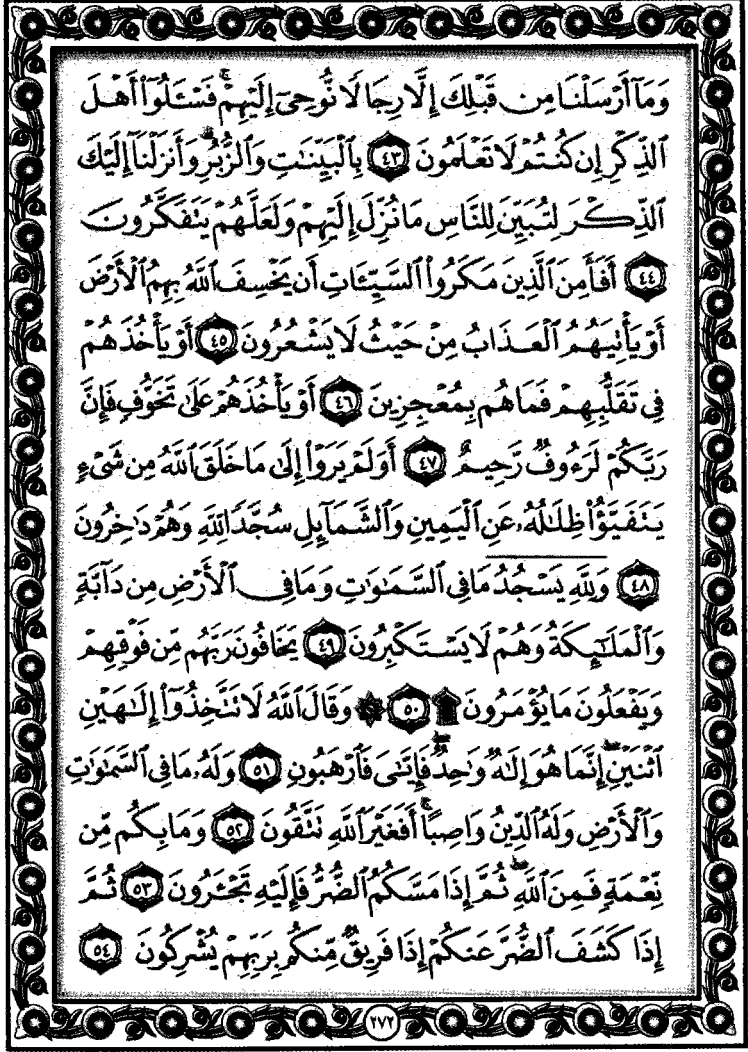 وَمَآ أَرْسَلْنَا مِن قَبْلِكَ إِلَّا رِجَالًا نُّوحِىٓ إِلَيْهِمْ ۚ فَسْـَٔلُوٓا۟ أَهْلَ
ٱلذِّكْرِ إِن كُنتُمْ لَا تَعْلَمُونَ ٤٣ بِٱلْبَيِّنَـٰتِ وَٱلزُّبُرِ ۗ وَأَنزَلْنَآ إِلَيْكَ
ٱلذِّكْرَ لِتُبَيِّنَ لِلنَّاسِ مَا نُزِّلَ إِلَيْهِمْ وَلَعَلَّهُمْ يَتَفَكَّرُونَ
٤٤ أَفَأَمِنَ ٱلَّذِينَ مَكَرُوا۟ ٱلسَّيِّـَٔاتِ أَن يَخْسِفَ ٱللَّهُ بِهِمُ ٱلْأَرْضَ
أَوْ يَأْتِيَهُمُ ٱلْعَذَابُ مِنْ حَيْثُ لَا يَشْعُرُونَ ٤٥ أَوْ يَأْخُذَهُمْ
فِى تَقَلُّبِهِمْ فَمَا هُم بِمُعْجِزِينَ ٤٦ أَوْ يَأْخُذَهُمْ عَلَىٰ تَخَوُّفٍ فَإِنَّ
رَبَّكُمْ لَرَءُوفٌ رَّحِيمٌ ٤٧ أَوَلَمْ يَرَوْا۟ إِلَىٰ مَا خَلَقَ ٱللَّهُ مِن شَىْءٍ
يَتَفَيَّؤُا۟ ظِلَـٰلُهُۥ عَنِ ٱلْيَمِينِ وَٱلشَّمَآئِلِ سُجَّدًا لِّلَّهِ وَهُمْ دَٰخِرُونَ
٤٨ وَلِلَّهِ يَسْجُدُ مَا فِى ٱلسَّمَـٰوَٰتِ وَمَا فِى ٱلْأَرْضِ مِن دَآبَّةٍ
وَٱلْمَلَـٰٓئِكَةُ وَهُمْ لَا يَسْتَكْبِرُونَ ٤٩ يَخَافُونَ رَبَّهُم مِّن فَوْقِهِمْ
وَيَفْعَلُونَ مَا يُؤْمَرُونَ ۩ ٥٠ ۞ وَقَالَ ٱللَّهُ لَا تَتَّخِذُوٓا۟ إِلَـٰهَيْنِ
ٱثْنَيْنِ ۖ إِنَّمَا هُوَ إِلَـٰهٌ وَٰحِدٌ ۖ فَإِيَّـٰىَ فَٱرْهَبُونِ ٥١ وَلَهُۥ مَا فِى ٱلسَّمَـٰوَٰتِ
وَٱلْأَرْضِ وَلَهُ ٱلدِّينُ وَاصِبًا ۚ أَفَغَيْرَ ٱللَّهِ تَتَّقُونَ ٥٢ وَمَا بِكُم مِّن
نِّعْمَةٍ فَمِنَ ٱللَّهِ ۖ ثُمَّ إِذَا مَسَّكُمُ ٱلضُّرُّ فَإِلَيْهِ تَجْـَٔرُونَ ٥٣ ثُمَّ
إِذَا كَشَفَ ٱلضُّرَّ عَنكُمْ إِذَا فَرِيقٌ مِّنكُم بِرَبِّهِمْ يُشْرِكُونَ ٥٤
٢٧٢